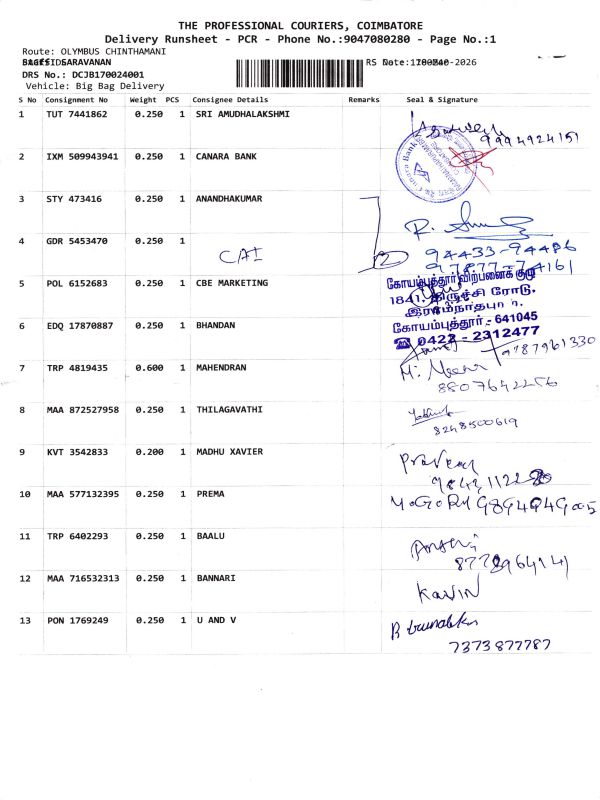 THE PROFESSIONAL COURIERS, COIMBATORE
Delivery Runsheet - PCR - Phone No.:9047080280 - Page No.:1
Route: OLYMBUS CHINTHAMANI
SARAVANAN
DRS No.: DCJB170024001
Vehicle: Big Bag Delivery
S No Consignment No Weight PCS Consignee Details Remarks Seal & Signature
1 TUT 7441862 0.250 1 SRI AMUDHALAKSHMI
9994924151
2 IXM 509943941 0.250 1 CANARA BANK
3 STY 473416 0.250 1 ANANDHAKUMAR
4 GDR 5453470 0.250 1 CAI 2
94433-94486
5 POL 6152683 0.250 1 CBE MARKETING
கோயம்புத்தூர் விற்பனைக் குழு
1841, திருச்சி ரோடு,
இராமநாதபுரம்,
கோயம்புத்தூர் - 641045
☎ 0422 - 2312477
6 EDQ 17870887 0.250 1 BHANDAN
9787961330
7 TRP 4819435 0.600 1 MAHENDRAN
8807642256
8 MAA 872527958 0.250 1 THILAGAVATHI
8248500619
9 KVT 3542833 0.200 1 MADHU XAVIER
Praveen
10 MAA 577132395 0.250 1 PREMA
11 TRP 6402293 0.250 1 BAALU
12 MAA 716532313 0.250 1 BANNARI
KAVIN
13 PON 1769249 0.250 1 U AND V
7373877787